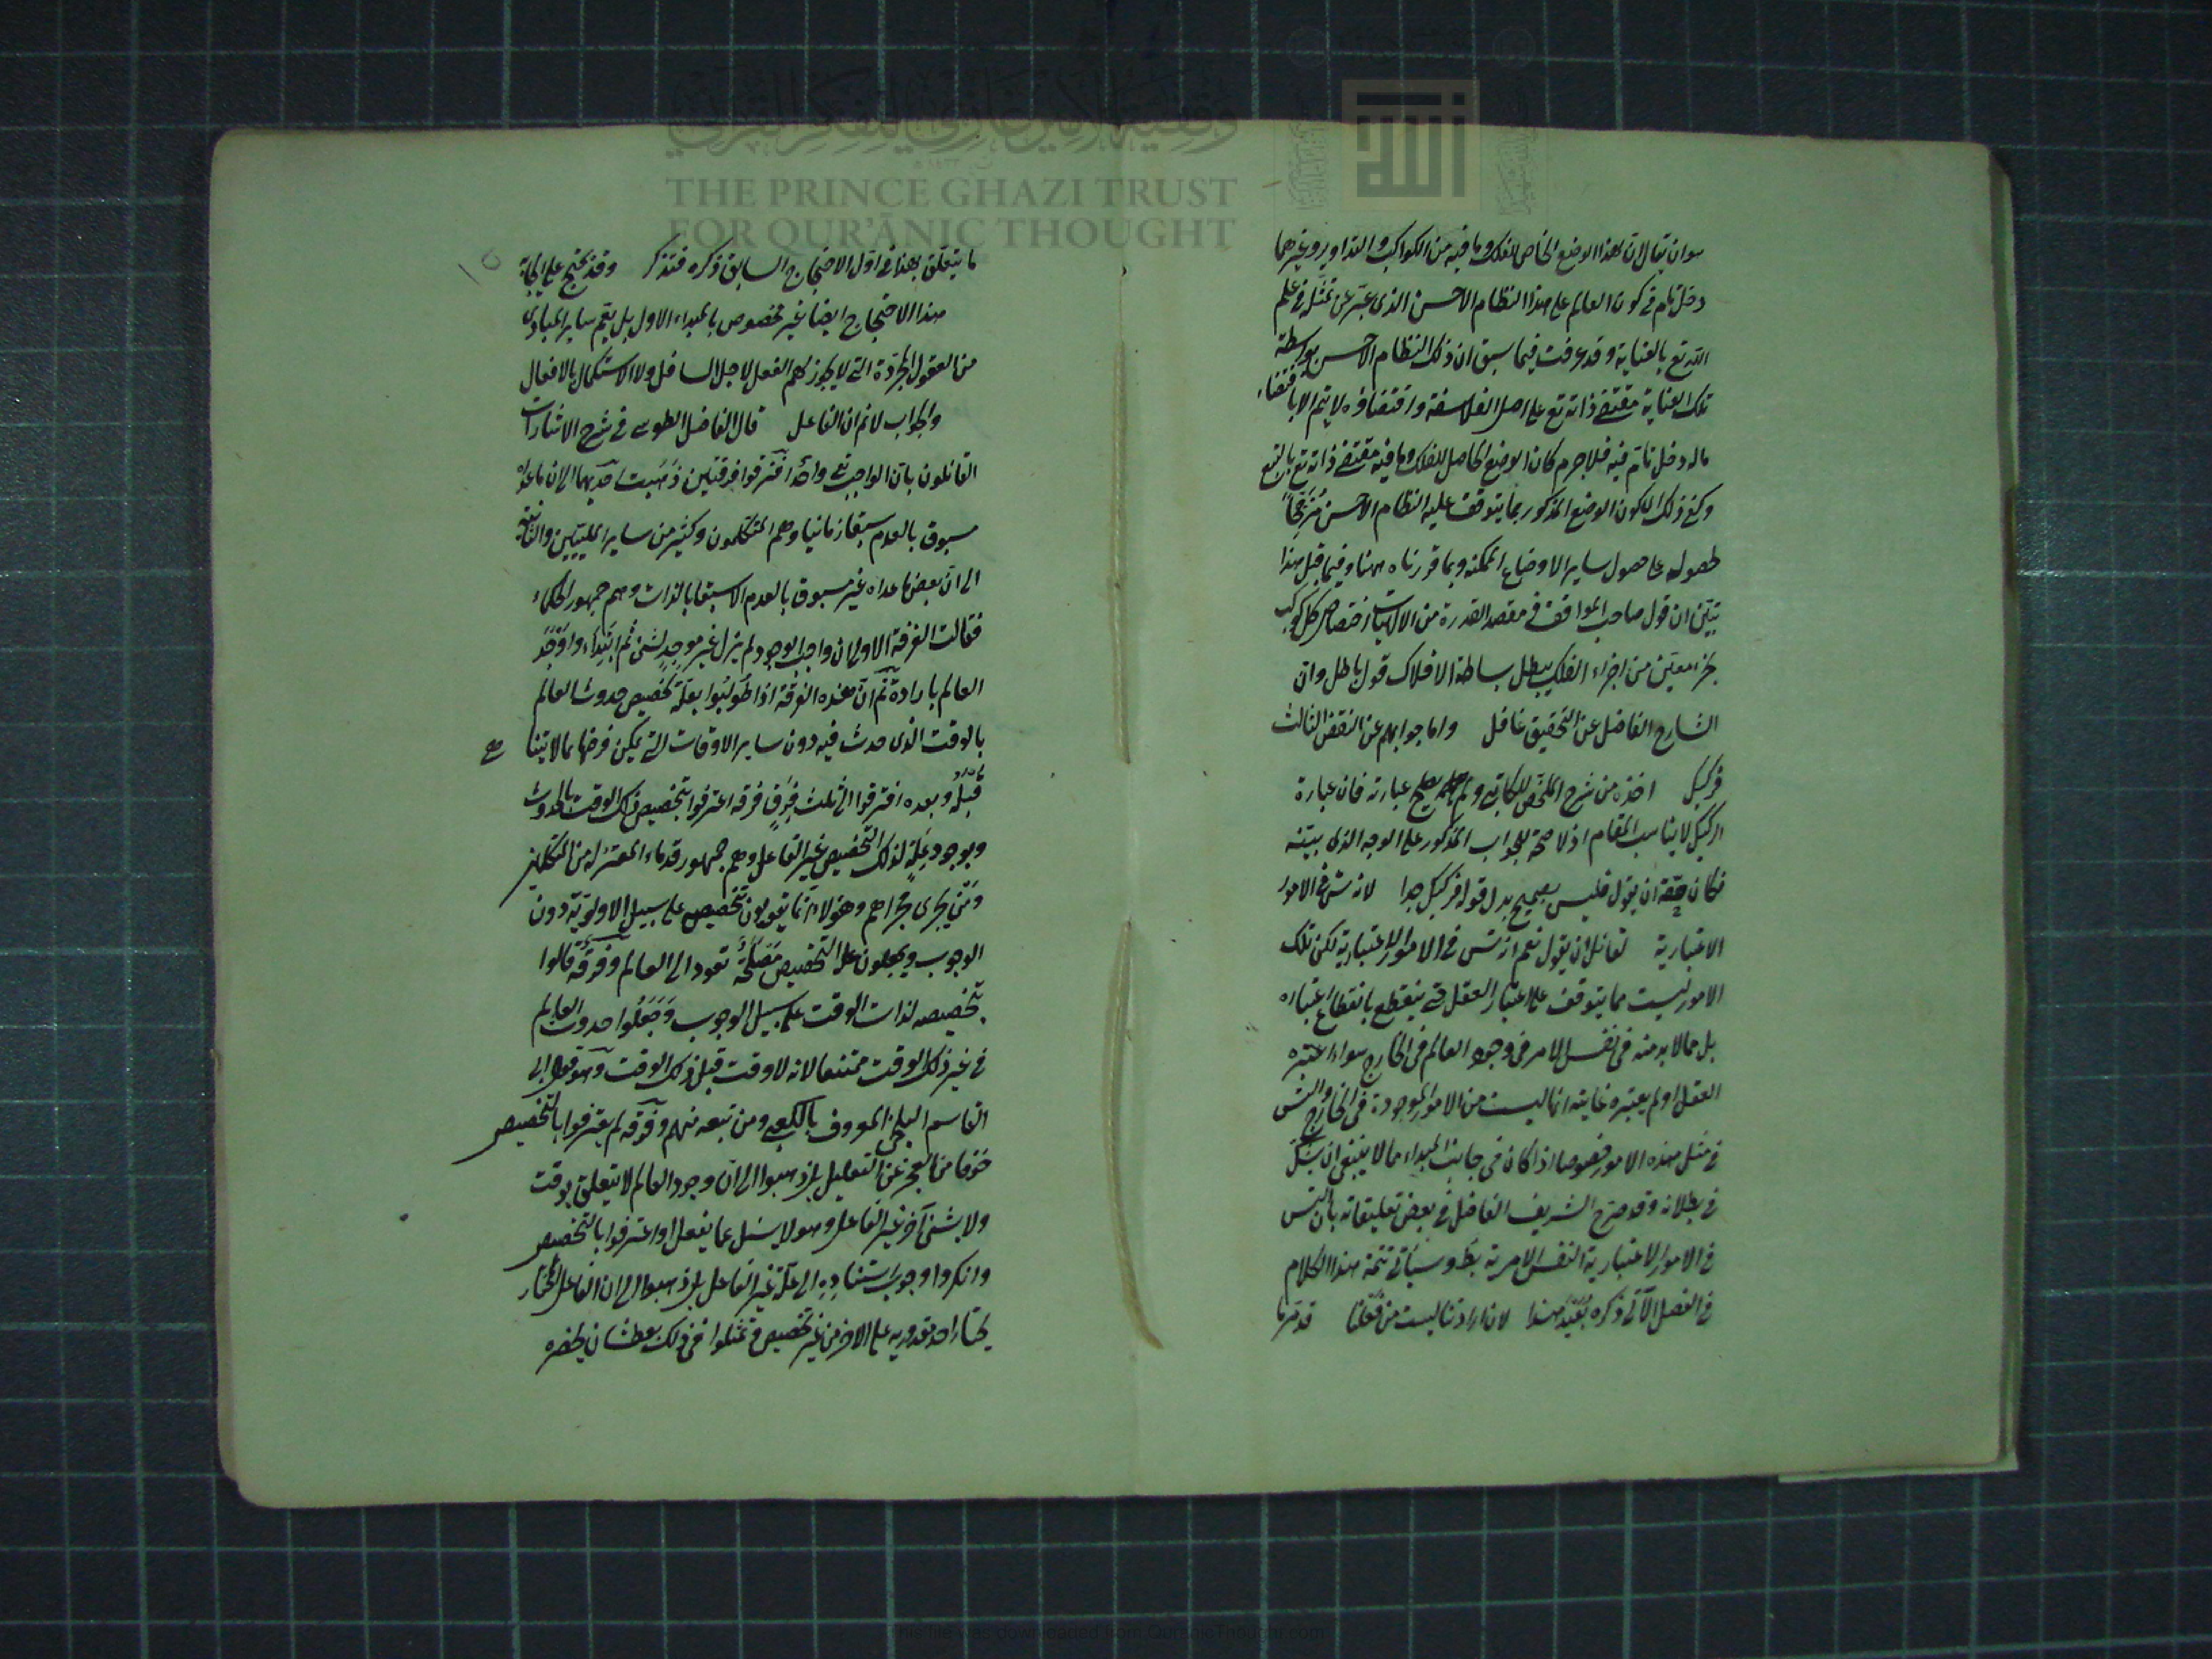 وقفية الأمير غازي للفكر القرآني
THE PRINCE GHAZI TRUST
FOR QUR'ĀNIC THOUGHT
سوان يقال ان لهذا الوضع الخاص للفلك وما فيه من الكواكب والتداوير وغيرهما
دخل تام في كون العالم على هذا النظام الاحسن الذى عبّر عن تمثّله في علم
الله تع بالعناية وقد عرفت فيما سبق ان ذلك النظام الاحسن بواسطة
تلك العناية مقتضى ذاته تع على اصل الفلاسفة واقتضاؤه لا يتم الا باقتضاء
ماله دخل تامّ فيه فلا جرم كان الوضع الحاصل للفلك وما فيه مقتضى ذاته تع بالتبع
وكفى ذلك لكون الوضع المذكور بما يتوقف عليه النظام الاحسن مُرَجّحاً
لحصوله على حصول ساير الاوضاع الممكنه وبما قررناه ههنا وفيما قبل هذا
تبيّن ان قول صاحب المواقف في مقصد القدرة من الالهيات اختصاص كل كوكب
بجزء معيّن من اجزاء الفلك يبطل بساطة الافلاك قول باطل وان
الشارح الفاضل عن التحقيق غافل واما جوابهم عن النقض الثالث
فركيك اخذه من شرح الملخّص للكاتبى ولم يصلح عبارته فان عبارة
الركيك لا يناسب المقام اذ لا صحة للجواب المذكور على الوجه الذى بيّنه
فكان حقّه ان يقول فليس بصحيح بدل قوله فركيك جدا لانه تس في الامور
الاعتبارية لقائل ان يقول نعم انه تس في الامور الاعتبارية لكن تلك
الامور ليست مما يتوقف على اعتبار العقل حتى ينقطع بانقطاع اعتباره
بل مما لا بد منه فى نفس الامر فى وجود العالم فى الخارج سواء اعتبره
العقل او لم يعتبره غايته انها ليست من الامور الموجودة فى الخارج والتس
فى مثل هذه الامور خصوصا اذا كان فى جانب المبداء مما لا ينبغى ان يشك
فى بطلانه وقد صرّح الشريف الفاضل في بعض تعليقاته بان التس
فى الامور الاعتبارية النفس الامرية بط وسيأتى تتمة هذا الكلام
فى الفصل الآتى ذكره بُعَيْدَ هذا لان ارادتنا ليست من فعلنا قد مرّ ما
ما يتعلق بهذا فى اول الاحتجاج السابق ذكره فتذكر وقد يحتج على
هذا الاحتجاج ايضا غير مخصوص بالمبداء الاول بل يعم ساير المبادى
من العقول المجرّدة التى لا يجوز لهم الفعل لاجل السافل ولا الاستكمال بالافعال
والجواب لا نم ان الفاعل قال الفاضل الطوسى فى شرح الاشارات
القائلون بان الواجب تع واحد افترقوا فرقتين ذهبت احديهما الى ان ما عداه
مسبوق بالعدم سبقا زمانيا وهم المتكلمون وكثير من ساير المليّين والثانية
الى ان بعض ما عداه غير مسبوق بالعدم الا سبقا بالذات وهم جمهور الحكماء
فقالت الفرقة الاولى ان واجب الوجود لم يزل غير موجدٍ لشئ ثم ابتداء واوجد
العالم بارادة ثم ان هذه الفرقة اذا طولبوا بعلّة تخصيص حدوث العالم
بالوقت الذى حدث فيه دون ساير الاوقات التى يمكن فرضها مما لا يتناهى
قبله وبعده افترقوا الى ثلث فرقٍ فرقه اعترفوا بتخصيص ذلك الوقت بالحدوث
وبوجود علّةٍ لذلك التخصيص غير الفاعل وهم جمهور قدماء المعتزله من المتكلمين
ومن يجرى مجراهم وهؤلاء انما يقولون بتخصيصه على سبيل الاولويّة دون
الوجوب ويجعلون علّة التخصيص مصلحةً تعود الى العالم وفرقه قالوا
بتخصيصه لذات الوقت على سبيل الوجوب وجعلوا حدوث العالم
فى غير ذلك الوقت ممتنعا لانه لا وقت قبل ذلك الوقت وهو قول ابى
القاسم البلخى المعروف بالكعبى ومن تبعه منهم وفرقه لم يعترفوا بالتخصيص
خوفا من العجز عن التعليل بل ذهبوا الى ان وجود العالم لا يتعلق بوقت
ولا بشئ آخر غير الفاعل وهو لا يسئل عما يفعل او اعترفوا بالتخصيص
وانكروا وجوب استناده الى علّة غير الفاعل بل ذهبوا الى ان الفاعل المختار
يختار احد مقدوريه على الاخر من غير تخصيص وتمثلوا فى ذلك بعطشان يحضره
This file was downloaded from QuranicThought.com